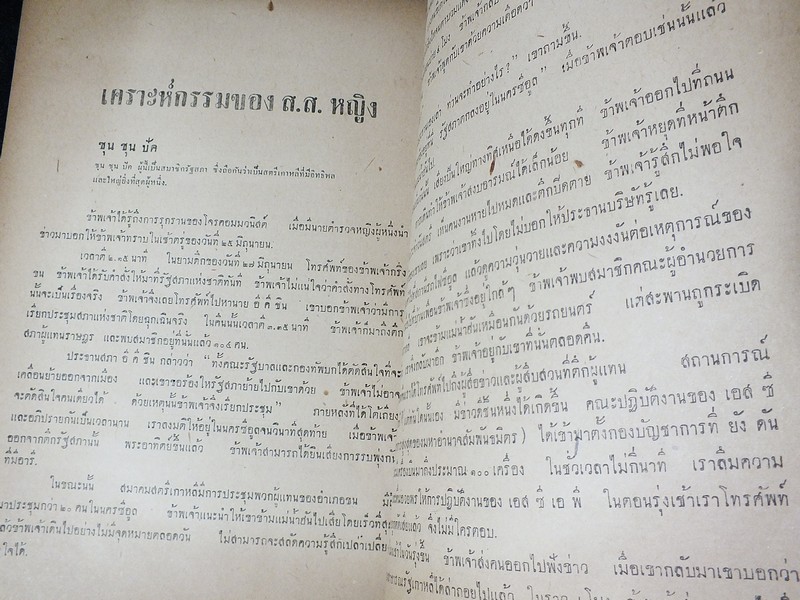 เคราะห์กรรมของ ส.ส. หญิง
ชุน ชุน ปัค
ชุน ชุน ปัค ผู้นี้เป็นสมาชิกรัฐสภา ซึ่งถือกันว่าเป็นสตรีเกาหลีที่มีอิทธิพล
และใหญ่ยิ่งที่สุดผู้หนึ่ง.
ข้าพเจ้าได้รู้ถึงการรุกรานของโจรคอมมวนิสต์ เมื่อมีนายตำรวจหญิงผู้หนึ่งนำ
ข่าวมาบอกให้ข้าพเจ้าทราบในเช้าตรู่ของวันที่ ๒๕ มิถุนายน.
เวลาตี ๒.๑๕ นาที ในยามดึกของวันที่ ๒๗ มิถุนายน โทรศัพท์ของข้าพเจ้ากริ่ง
ขึ้น ข้าพเจ้าได้รับคำสั่งให้มาที่รัฐสภาแห่งชาติทันที ข้าพเจ้าไม่แน่ใจว่าคำสั่งทางโทรศัพท์
นั้นจะเป็นเรื่องจริง ข้าพเจ้าจึงเลยโทรศัพท์ไปหานาย อี คี ชิน เขาบอกข้าพเจ้าว่ามีการ
เรียกประชุมสภาแห่งชาติโดยฉุกเฉินจริง ในคืนนั้นเวลาตี ๓.๓๕ นาที ข้าพเจ้าก็มาถึงตึก
สภาผู้แทนราษฎร และพบสมาชิกอยู่ที่นั่นแล้ว ๑๐๕ คน.
ประธานสภา อี คี ชิน กล่าวว่า "ทั้งคณะรัฐบาลและกองทัพบกได้ตัดสินใจที่จะ
เคลื่อนย้ายออกจากเมือง และเขาขอร้องให้รัฐสภาย้ายไปกับเขาด้วย ข้าพเจ้าไม่อาจ
จะตัดสินใจคนเดียวได้ ด้วยเหตุนั้นข้าพเจ้าจึงเรียกประชุม" ภายหลังที่ได้โต้เถียง
และอภิปรายกันเป็นเวลานาน เราลงมติให้อยู่ในนครซีอูลจนวินาทีสุดท้าย เมื่อข้าพเจ้า
ออกจากตึกรัฐสภานั้น พระอาทิตย์ขึ้นแล้ว ข้าพเจ้าสามารถได้ยินเสียงการรบพุ่งกัน
ที่มีอารี.
ในขณะนั้น สมาคมสตรีเกาหลีมีการประชุมพวกผู้แทนของอำเภอขน
มาประชุมกว่า ๒๐ คนในนครซีอูล ข้าพเจ้าแนะนำให้เขาข้ามแม่น้ำฮันไปเสียโดยเร็วที่สุด
ข้าพเจ้าเดินไปอย่างไม่มีจุดหมายตลอดวัน ไม่สามารถจะสลัดความรู้สึกเปล่าเปลี่ยว
ใจได้.
ท่านจะทำอย่างไร?" เขาถามขึ้น.
รัฐสภาคงอยู่ในนครซีอูล" เมื่อข้าพเจ้าตอบเช่นนั้นแล้ว
เสียงปืนใหญ่ทางทิศเหนือได้ดังขึ้นทุกที ข้าพเจ้าออกไปที่ถนน
ทำให้ข้าพเจ้าสงบอารมณ์ได้เล็กน้อย ข้าพเจ้าหยุดที่หน้าตึก
เห็นคนงานหายไปหมดและตึกปิดตาย ข้าพเจ้ารู้สึกไม่พอใจ
เพราะว่าเขาทิ้งไปโดยไม่บอกให้ประธานบริษัทรู้เลย.
แล้วดูความวุ่นวายและความงงงันต่อเหตุการณ์ของ
เพื่อนข้าพเจ้าซึ่งอยู่ใกล้ๆ ข้าพเจ้าพบสมาชิกคณะผู้อำนวยการ
เราจะข้ามแม่น้ำฮันเหมือนกันด้วยรถยนตร์ แต่สะพานถูกระเบิด
ข้าพเจ้าอยู่กับเขาที่นั่นตลอดคืน.
โทรศัพท์ไปถึงผู้สื่อข่าวและผู้สืบสวนที่ตึกผู้แทน สถานการณ์
มีข่าวดีขึ้นหนึ่งได้เกิดขึ้น คณะปฏิบัติงานของ เอส ซี
ของมหาอำนาจสัมพันธมิตร) ได้เข้ามาตั้งกองบัญชาการที่ ยัง ดัน
มาถึงประมาณ ๑๐๐ เครื่อง ในชั่วเวลาไม่กี่นาที เราลืมความ
ให้การปฏิบัติงานของ เอส ซี เอ พี ในตอนรุ่งเช้าเราโทรศัพท์
แล้ว จึงไม่มีใครตอบ.
รุ่งขึ้น ข้าพเจ้าส่งคนออกไปฟังข่าว เมื่อเขากลับมาเขาบอกว่า
รัฐเกาหลีได้ล่าถอยไปแล้ว